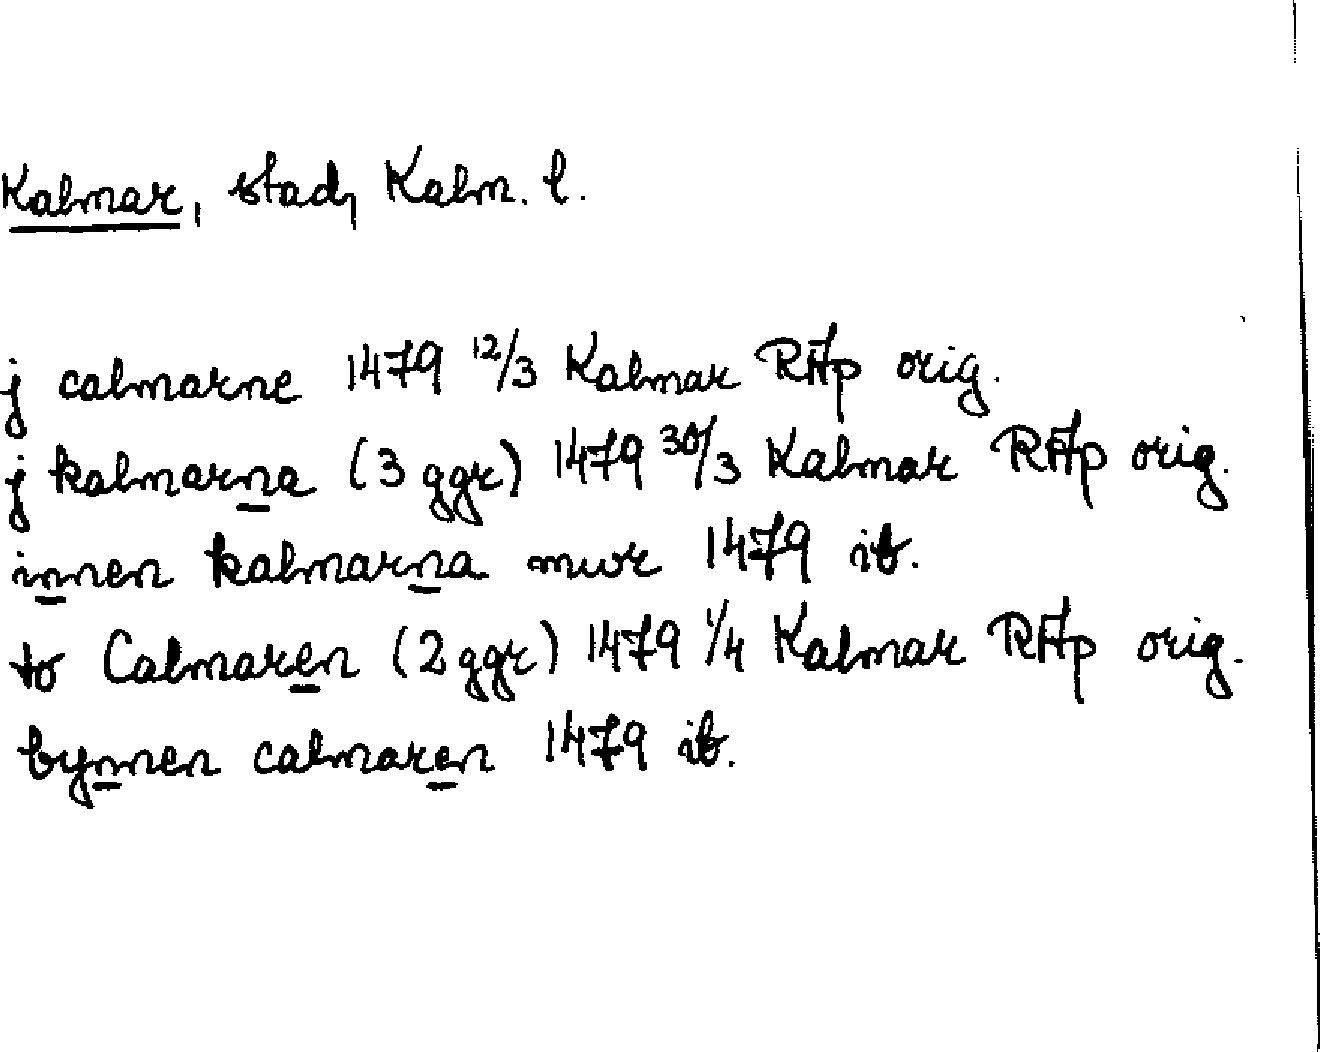 Kalmar, stad, Kalm. l.
j calmarne 1479 12/3 Kalmar RAp orig.
j kalmarna (3 ggr) 1479 30/3 Kalmar RAp orig.
innen kalmarna mwr 1479 ib.
to Calmaren (2 ggr) 1479 1/4 Kalmar RAp orig.
bynnen calmaren 1479 ib.